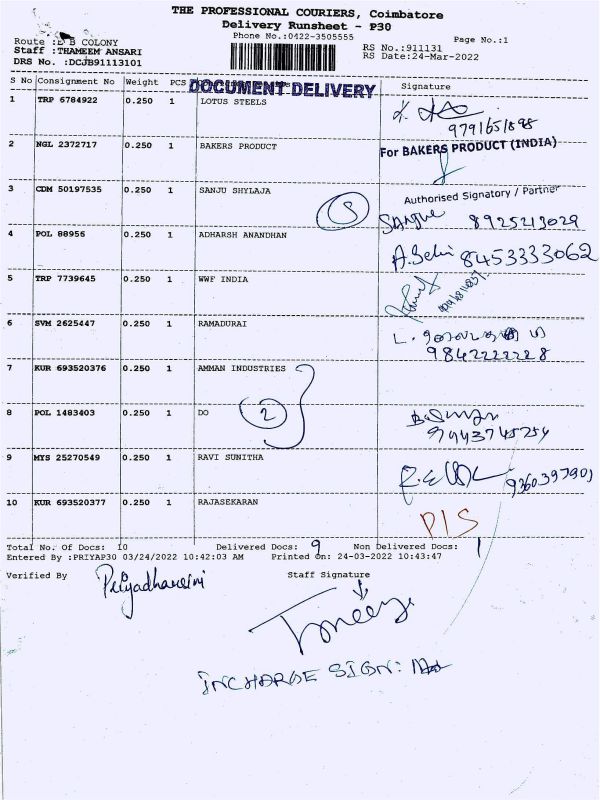 THE PROFESSIONAL COURIERS, Coimbatore
Delivery Runsheet - P30
Phone No.:0422-3505555
Page No.:1
Route :E B COLONY
Staff :THAMEEM ANSARI
DRS No. :DCJB91113101
RS No.:911131
RS Date:24-Mar-2022
S No Consignment No Weight PCS Signature
DOCUMENT DELIVERY
1 TRP 6784922 0.250 1 LOTUS STEELS
9791651898
2 NGL 2372717 0.250 1 BAKERS PRODUCT
For BAKERS PRODUCT (INDIA)
Authorised Signatory / Partner
3 CDM 50197535 0.250 1 SANJU SHYLAJA
8925213029
4 POL 88956 0.250 1 ADHARSH ANANDHAN
8453333062
5 TRP 7739645 0.250 1 WWF INDIA
6 SVM 2625447 0.250 1 RAMADURAI
9842222228
7 KUR 693520376 0.250 1 AMMAN INDUSTRIES
8 POL 1483403 0.250 1 DO 2
9443745254
9 MYS 25270549 0.250 1 RAVI SUNITHA
9360397901
10 KUR 693520377 0.250 1 RAJASEKARAN
Total No. Of Docs: 10 Delivered Docs: 9 Non Delivered Docs: 1
Entered By :PRIYAP30 03/24/2022 10:42:03 AM Printed on: 24-03-2022 10:43:47
Verified By Priyadharsini Staff Signature
INCHARGE SIGN: